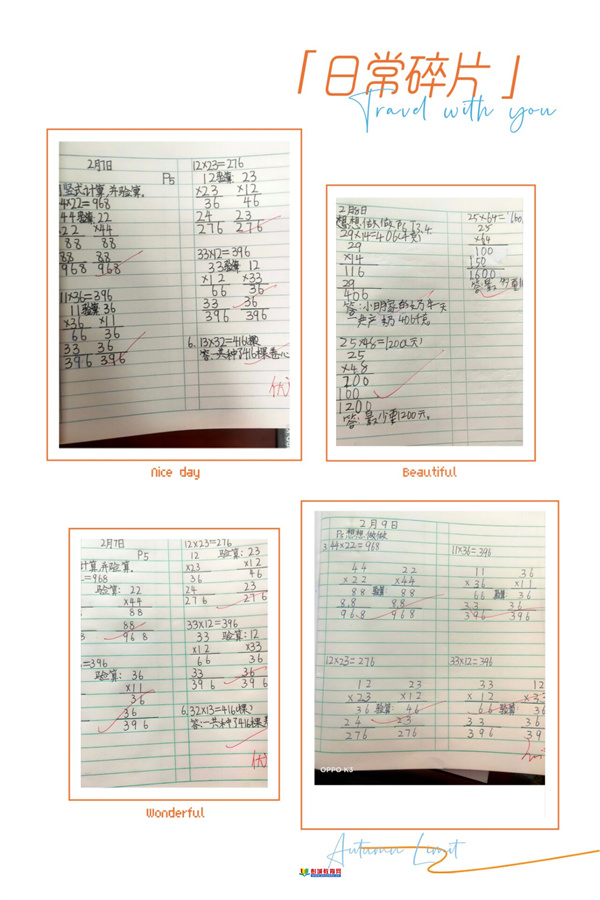 「日常碎片」
Travel with you
2月7日
P5
竖式计算,并验算。
4×22=968
44 验算: 22
22 ×44
88 88
88 88
968 968
11×36=396
11 验算 36
×36 ×11
66 36
33 36
396 396
12×23=276
12 验算: 23
×23 ×12
36 46
24 23
276 276
33×12=396
33 验算: 12
×12 ×33
66 36
33 36
396 396
6. 13×32=416(棵)
答:一共种了416棵卷心
Nice day
2月8日
想想,做做 P6 T3.4
29×14=406(千克)
29
×14
116
29
406
答:小明家的奶牛一天
一共产奶406千克。
25×48=1200(元)
25
×48
200
100
1200
答:最少要1200元。
25×64=
25
×64
100
150
1600
Beautiful
2月7日
P5
计算,并验算。
=968
验算: 22
×44
88
88
968
=396
验算: 36
×11
36
36
396
12×23=276
12 验算: 23
×23 ×12
36 46
24 23
276 276
33×12=396
33 验算: 12
×12 ×33
66 36
33 36
396 396
6. 32×13=416(棵)
答:一共种了416棵卷
Wonderful
2月9日
P5 想想做做
3. 44×22=968
44 22
×22 ×44
88 验算 88
88 88
968 968
11×36=396
11 36
×36 ×11
66 验算 36
33 36
396 396
12×23=276
12 23
×23 ×12
36 验算: 46
24 23
276 276
33×12=396
33 12
×12 ×3
66 验算: 36
33 36
396 39
OPPO K3
Autumn Limit
彭城教育网